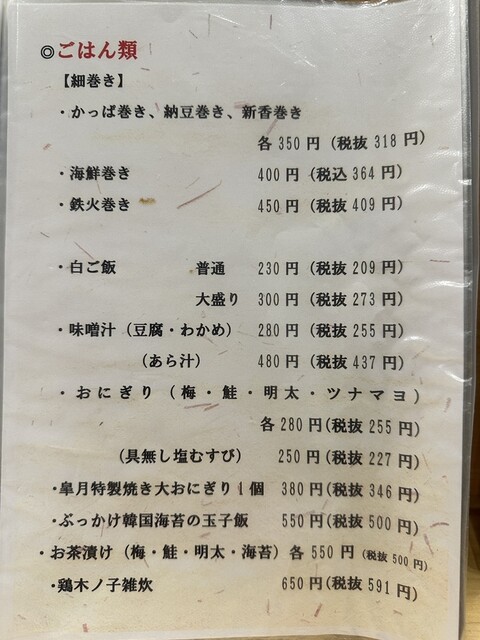 ◎ごはん類
【細巻き】
・かっぱ巻き、納豆巻き、新香巻き
各350円（税抜318円）
・海鮮巻き 400円（税込364円）
・鉄火巻き 450円（税抜409円）
・白ご飯 普通 230円（税抜209円）
大盛り 300円（税抜273円）
・味噌汁（豆腐・わかめ） 280円（税抜255円）
（あら汁） 480円（税抜437円）
・おにぎり（梅・鮭・明太・ツナマヨ）
各280円（税抜255円）
（具無し塩むすび） 250円（税抜227円）
・皐月特製焼き大おにぎり1個 380円（税抜346円）
・ぶっかけ韓国海苔の玉子飯 550円（税抜500円）
・お茶漬け（梅・鮭・明太・海苔）各550円（税抜500円）
・鶏木ノ子雑炊 650円（税抜591円）